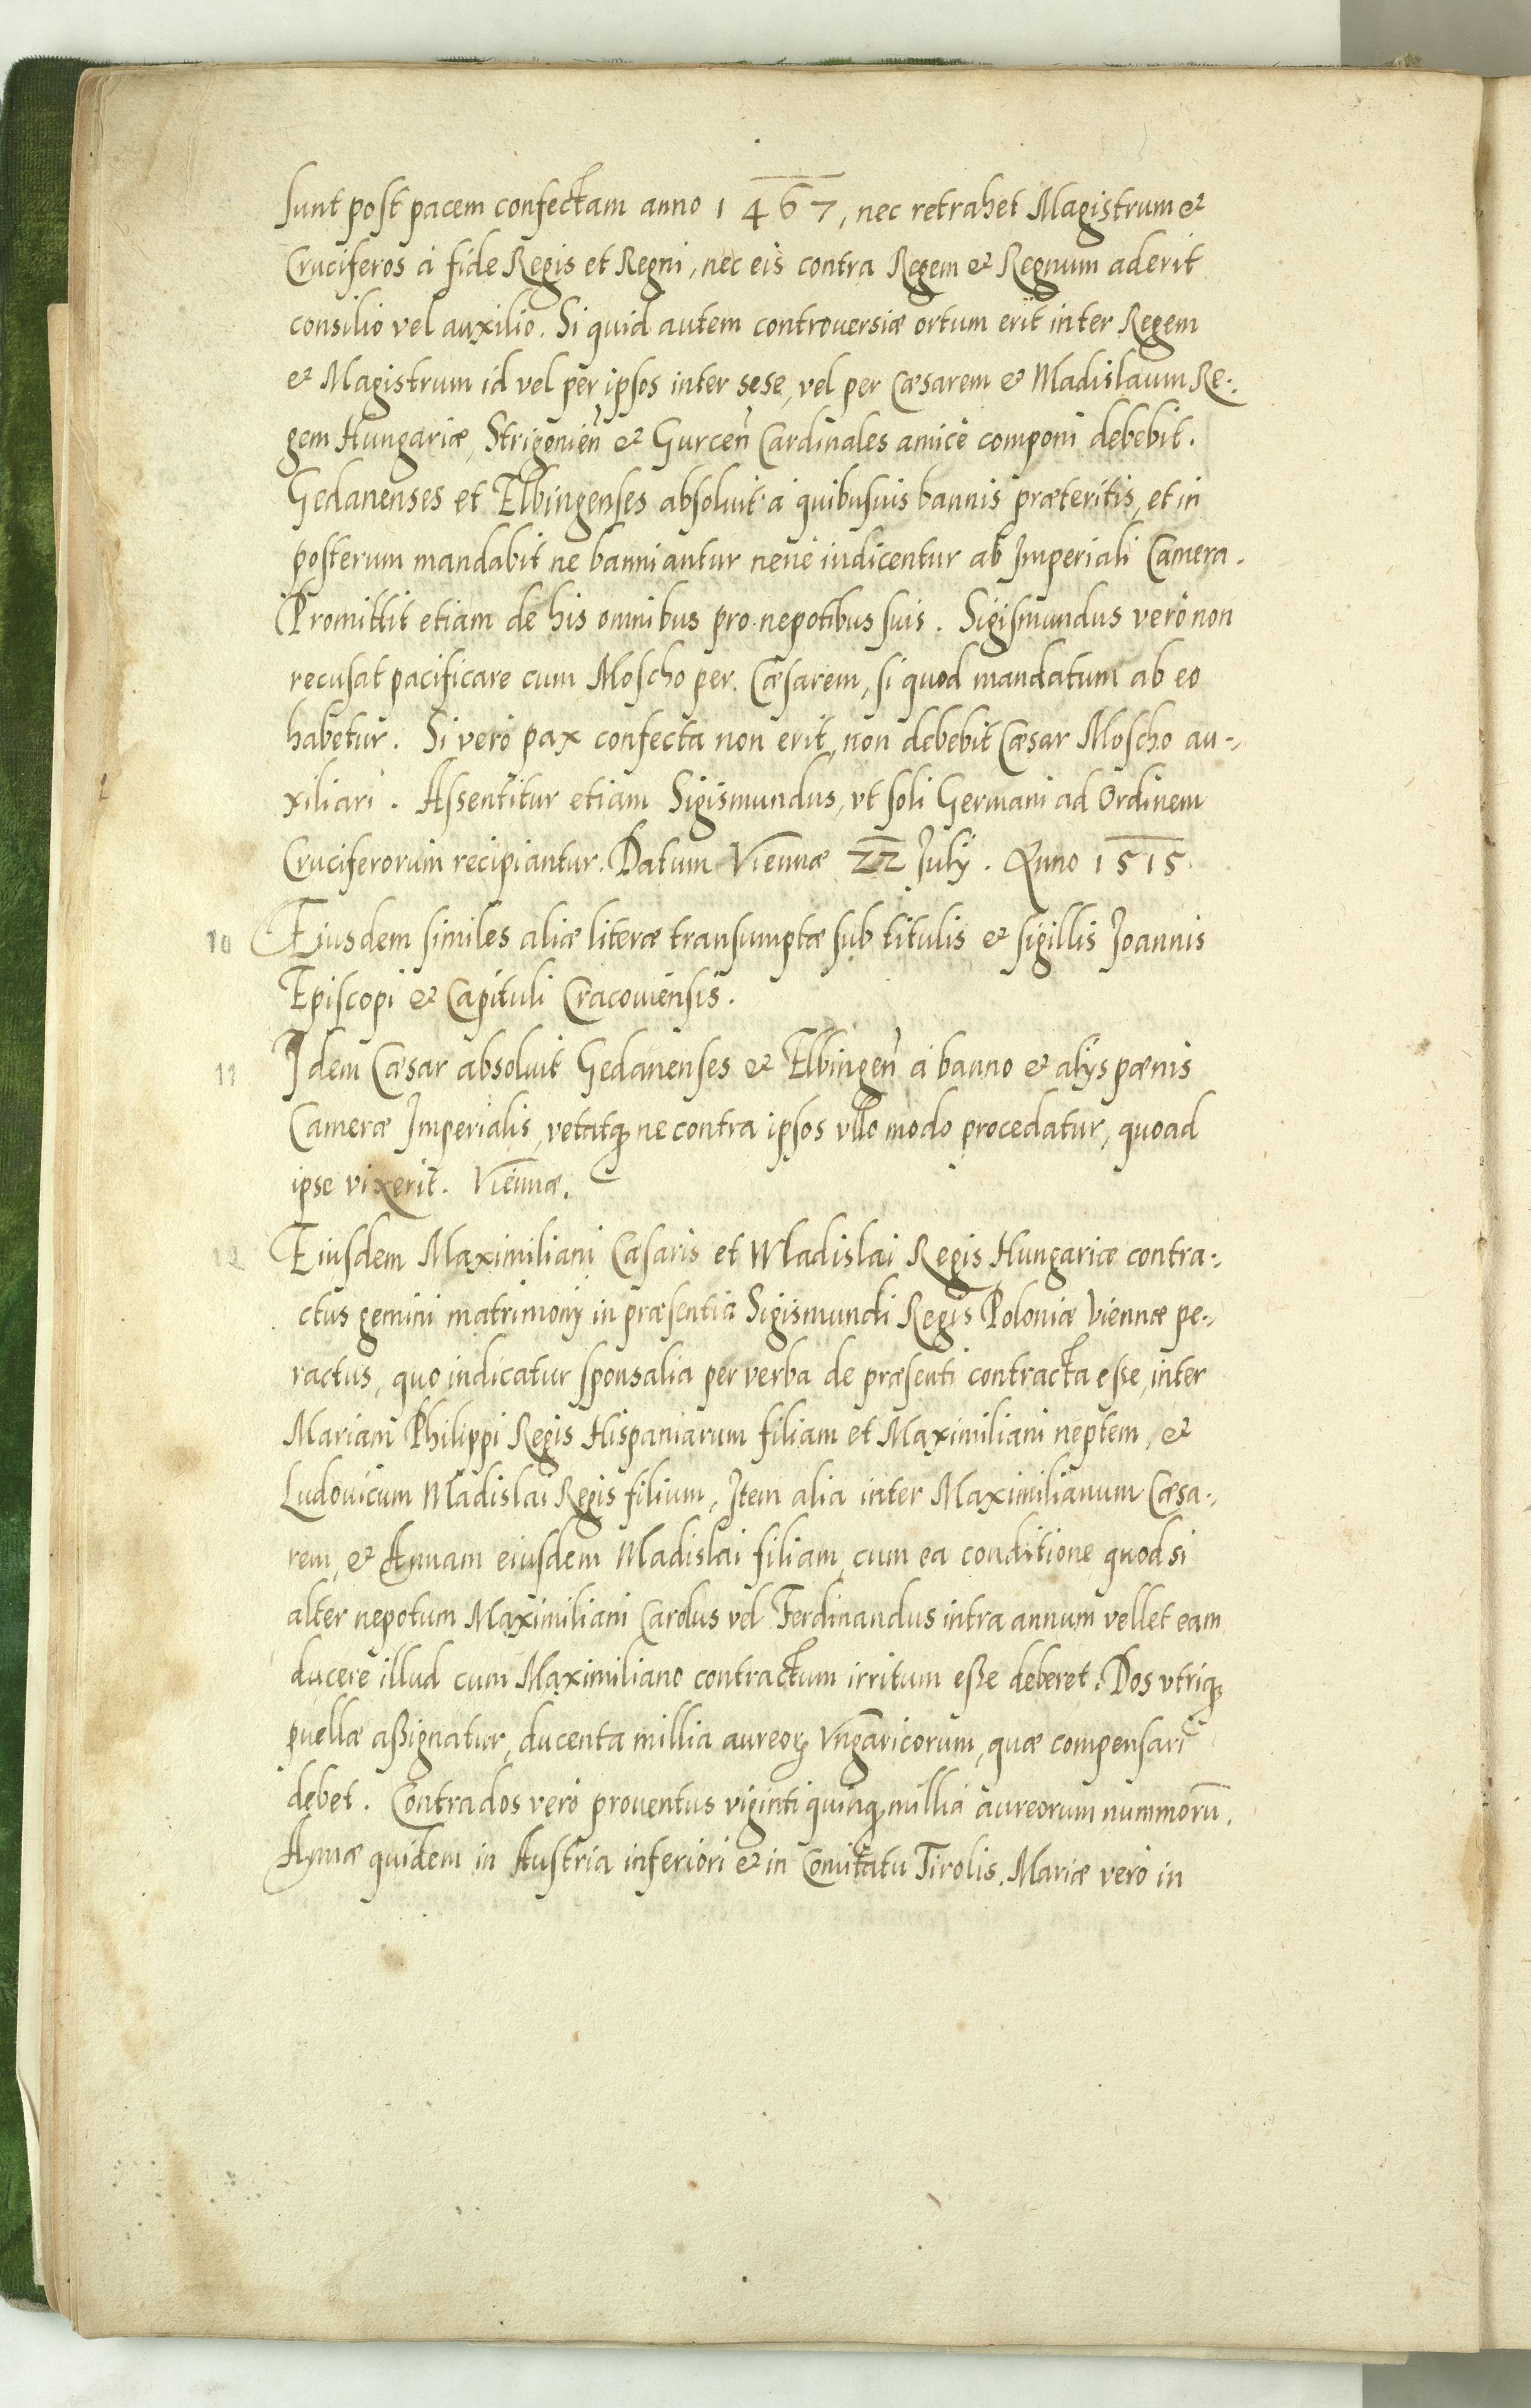 sunt post pacem confectam anno 1467, nec retrahet Magistrum &
Cruciferos à fide Regis et Regni, nec eis contra Regem & Regnum aderit
consilio vel auxilio. Si quid autem controuersiæ ortum erit inter Regem
& Magistrum id vel per ipsos inter sese, vel per Cæsarem & Wladislaum Re-
gem Hungariæ, Strigonien̄ & Gurcen̄ Cardinales amicè componi debebit.
Gedanenses et Elbingenses absoluit à quibusuis bannis præteritis, et in
posterum mandabit ne banniantur neue iudicentur ab Imperiali Camera.
Promittit etiam de his omnibus pro nepotibus suis. Sigismundus verò non
recusat pacificare cum Moscho per Cæsarem, si quod mandatum ab eo
habetur. Si verò pax confecta non erit, non debebit Cæsar Moscho au-
xiliari. Assentitur etiam Sigismundus, vt soli Germani ad Ordinem
Cruciferorum recipiantur. Datum Viennæ 22 July. Anno 1515
10 Eiusdem similes aliæ literæ transumptæ sub titulis & sigillis Joannis
Episcopi & Capituli Cracouiensis.
11 Idem Cæsar absoluit Gedanenses & Elbingen̄ à banno & alys pænis
Cameræ Imperialis, vetatq; ne contra ipsos vllo modo procedatur, quoad
ipse vixerit. Viennæ.
12 Eiusdem Maximiliani Cæsaris et Wladislai Regis Hungariæ contra-
ctus gemini matrimony in præsentia Sigismundi Regis Poloniæ Viennæ pe-
ractus, quo indicatur sponsalia per verba de præsenti contracta esse, inter
Mariam Philippi Regis Hispaniarum filiam et Maximiliani neptem, &
Ludouicum Wladislai Regis filium, Item alia inter Maximilianum Cæsa-
rem, & Annam eiusdem Wladislai filiam, cum ea conditione quod si
alter nepotum Maximiliani Carolus vel Ferdinandus intra annum vellet eam
ducere illud cum Maximiliano contractum irritum eße deberet. Dos vtriq;
puellæ aßignatur, ducenta millia aureorꝫ Vngaricorum, quæ compensari
debet. Contrados verò prouentus viginti quinq; millia aureorum nummorū.
Annæ quidem in Austria inferiori & in Comitatu Tirolis. Mariæ verò in